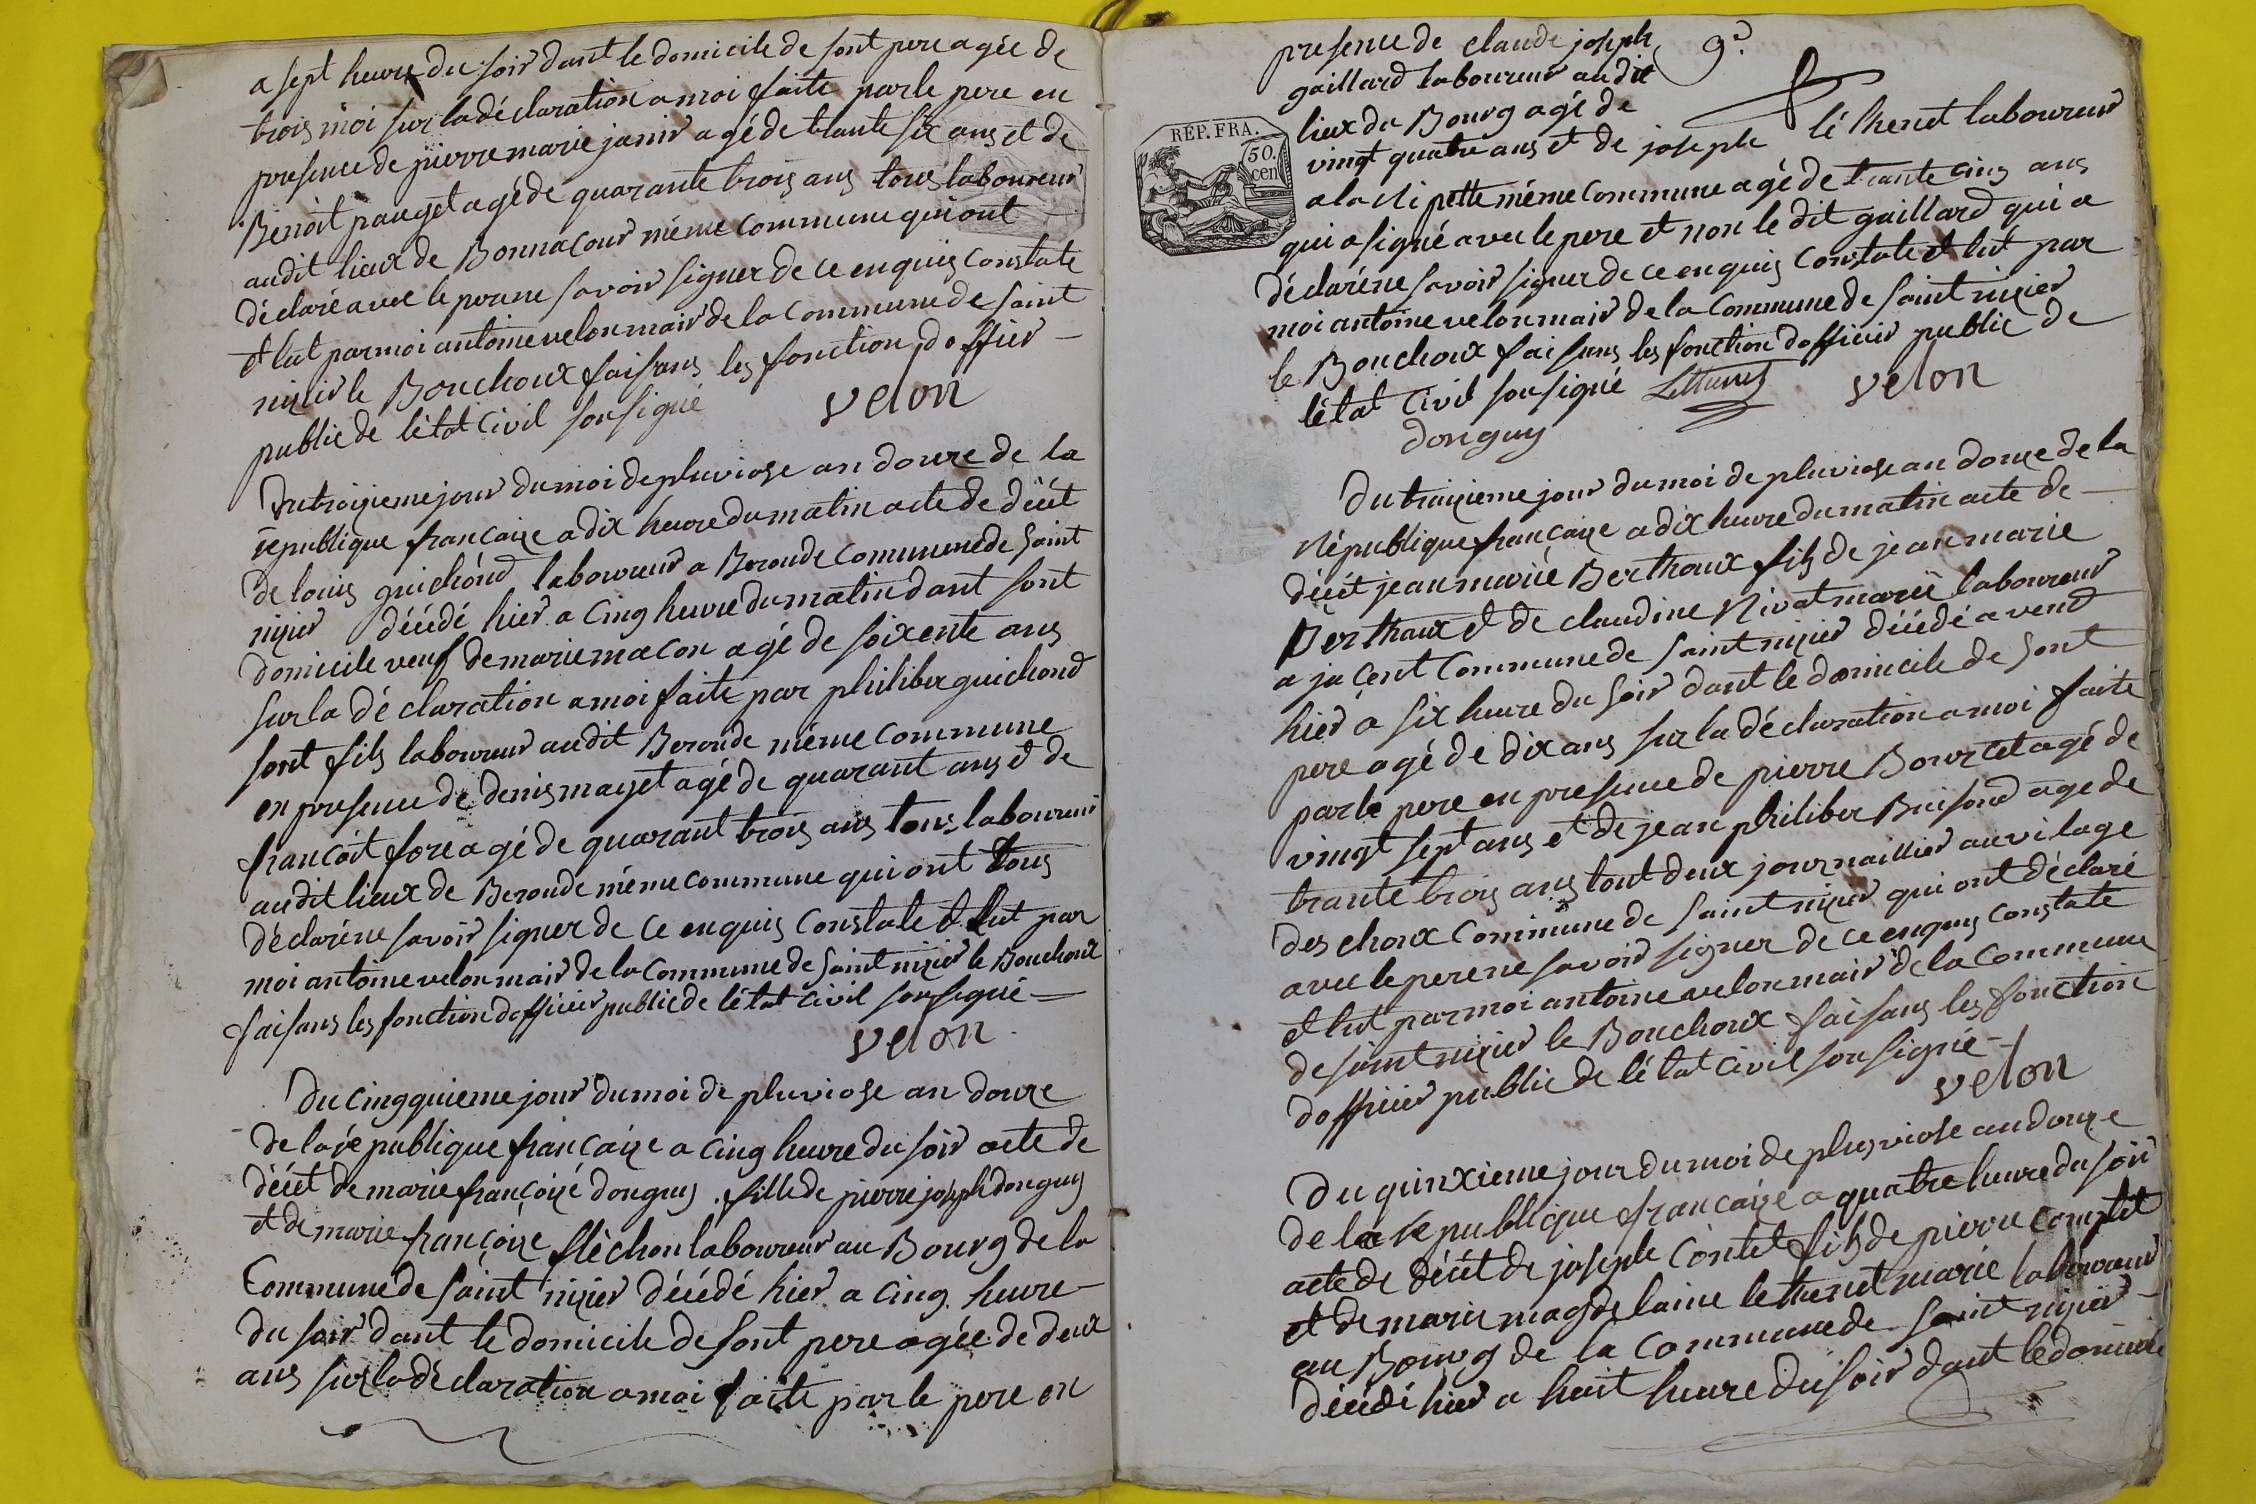 a sept heure du soir dant le domicile de sont pere agée de
trois moi sur la déclaration a moi faite par le pere en
presence de pierre marie janir agé de trante six ans et de
Benoit pauget agé de quarante trois ans tous laboureur
audit lieux de Bonnacour même commune qui ont
déclaré avec le pere ne savoir signer de ce enquis constate
et lut par moi antoine velon mair de la commune de saint
nizier le Bouchoux faisans les fonction doffier
public de létat civil sousigné velon
Du troizieme jour du moi de pluviose an douze de la
république francaize a dix heure du matin acte de décét
de louis guichond laboureur a Beroude commune de saint
nizier décédé hier a cinq heure du matin dant sont
domicile veuf de marie macon agé de soixente ans
sur la déclaration a moi faite par philiber guichond
sont fils laboureur audit Beroude même commune
en presence de denis mayet agé de quarant ans et de
francoit fore agé de quarant trois ans tous laboureur
audit lieux de Beroude même commune qui ont tous
déclaré ne savoir signer de ce enquis constate et lut par
moi antoine velon mair de la commune de saint nizier le Bouchoux
faisans les fonction dofficier public de létat civil sousigné
velon
Du cinqquieme jour du moi de pluviose an douze
de la république francaize a cinq heure du soir acte de
décét de marie françoizé donguy fille de pierre joseph donguy
et de marie françoize fléchon laboureur au Bourg de la
Commune de saint nizier décédé hier a cinq heure
du soir dant le domicile de sont pere agée de deux
ans sur la déclaration a moi faite par le pere en
presence de claude joseph 9e
gaillard laboureur audit
lieux du Bourg agé de
REP. FRA.
50.
cen
vingt quatre ans et de joseph lé thenet laboureur
a la même commune agé de trante cinq ans
qui a signé avec le pere et non le dit gaillard qui a
déclaré ne savoir signer de ce enquis constate et lut par
moi antoine velon mair de la commune de saint nizier
le Bouchoux faisans les fonction dofficier public de
létat civil sousigné velon
donguy
Du traizieme jour du moi de pluviose an douze de la
République francaize a dix heure du matin acte de
décét jean marié Berthoux fils de jean marie
Berthaux et de claudine Nivat marié laboureur
a jacent commune de saint nizier décédé avend
hier a six heure du soir dant le domicile de sont
pere agé de dix ans sur la déclaration a moi faite
par le pere en presence de pierre Bourcet agé de
vingt sept ans et de jean philiber Buisond agé de
trante trois ans tout deux journaillier au vilage
des choux commune de saint nizier qui ont déclaré
avec le pere ne savoir signer de ce enquis constate
et lut par moi antoine velon mair de la commune
de saint nizier le Bouchoux faisans les fonction
dofficier public de létat civil sousigné
velon
Du quinxieme jour du moi de pluviose an douze
de la république francaize a quatre heure du soir
acte de décét de joseph Contet fils de pierre comtet
et de marie magdelaine lethenet marie laboureur
au Bourg de la commune de saint nizier
décédé hier a huit heure du soir dant le domicile